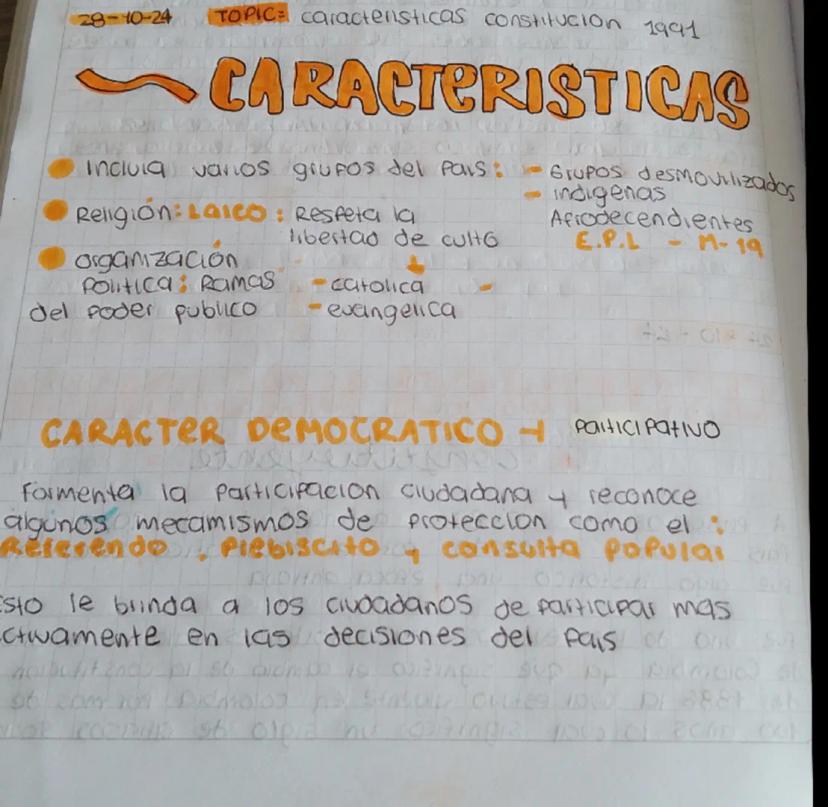 28-10-24 TOPIC: caracteristicas constitucion 1991
CARACTERISTICAS
Incluia varios grupos del pais: - Grupos desmovilizados
- indigenas
Afrodecendientes
E.P.L - M-19
Religión: Laico: Respeta la
libertad de culto
organización
politica: Ramas
del poder publico
- catolica -
- evangelica
CARACTER DEMOCRATICO → participativo
Formenta la participacion ciudadana y reconoce
algunos mecamismos de proteccion como el:
Referendo, Plebiscito y consulta popular
Esto le brinda a los ciudadanos de participar mas
ctivamente en las decisiones del pais